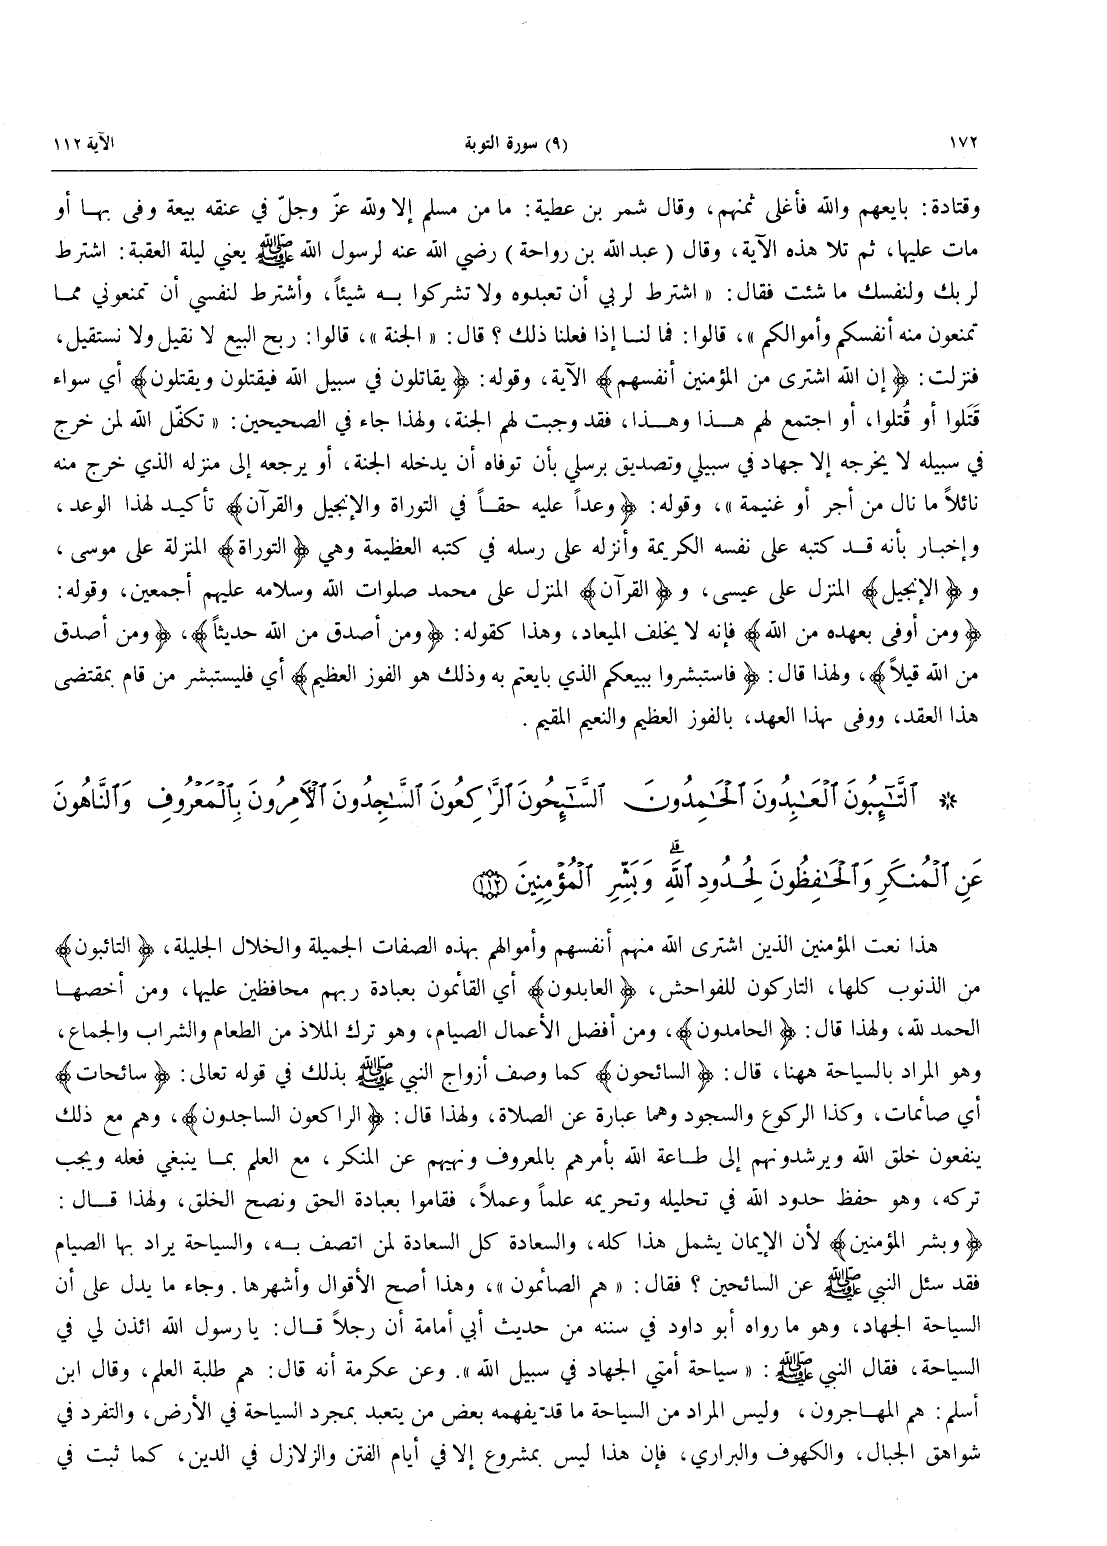 ١٧٢ (٩) سورة التوبة الآية ١١٢
وقتادة: بايعهم والله فأغلى ثمنهم، وقال شمر بن عطية: ما من مسلم إلا ولله عزّ وجلّ في عنقه بيعة وفى بهـا أو
مات عليها، ثم تلا هذه الآية، وقال ( عبد الله بن رواحة ) رضي الله عنه لرسول الله ﷺ يعني ليلة العقبة: اشترط
لربك ولنفسك ما شئت فقال: « اشترط لربي أن تعبدوه ولا تشركوا بـه شيئاً، وأشترط لنفسي أن تمنعوني ممـا
تمنعون منه أنفسكم وأموالكم »، قالوا: فما لنـا إذا فعلنا ذلك ؟ قال: « الجنة »، قالوا: ربح البيع لا نقيل ولا نستقيل،
فنزلت: ﴿ إن الله اشترى من المؤمنين أنفسهم﴾ الآية، وقوله: ﴿ يقاتلون في سبيل الله فيقتلون ويقتلون﴾ أي سواء
قَتَلوا أو قُتلوا، أو اجتمع لهم هـذا وهـذا، فقد وجبت لهم الجنة، ولهذا جاء في الصحيحين: « تكفّل الله لمن خرج
في سبيله لا يخرجه إلا جهاد في سبيلي وتصديق برسلي بأن توفاه أن يدخله الجنة، أو يرجعه إلى منزله الذي خرج منه
نائلاً ما نال من أجر أو غنيمة »، وقوله: ﴿ وعداً عليه حقـاً في التوراة والإنجيل والقرآن﴾ تأكيـد لهذا الوعد،
وإخبـار بأنه قـد كتبه على نفسه الكريمة وأنزله على رسله في كتبه العظيمة وهي ﴿ التوراة﴾ المنزلة على موسى،
و ﴿ الإنجيل﴾ المنزل على عيسى، و ﴿ القرآن﴾ المنزل على محمد صلوات الله وسلامه عليهم أجمعين، وقوله:
﴿ ومن أوفى بعهده من الله﴾ فإنه لا يخلف الميعاد، وهذا كقوله: ﴿ ومن أصدق من الله حديثاً﴾، ﴿ ومن أصدق
من الله قيلاً﴾، ولهذا قال: ﴿ فاستبشروا ببيعكم الذي بايعتم به وذلك هو الفوز العظيم﴾ أي فليستبشر من قام بمقتضى
هذا العقد، ووفى بهذا العهد، بالفوز العظيم والنعيم المقيم .
* ٱلتَّـٰٓئِبُونَ ٱلْعَـٰبِدُونَ ٱلْحَـٰمِدُونَ ٱلسَّـٰٓئِحُونَ ٱلرَّٰكِعُونَ ٱلسَّـٰجِدُونَ ٱلْأَمِرُونَ بِٱلْمَعْرُوفِ وَٱلنَّاهُونَ
عَنِ ٱلْمُنكَرِ وَٱلْحَـٰفِظُونَ لِحُدُودِ ٱللَّهِ ۗ وَبَشِّرِ ٱلْمُؤْمِنِينَ ﴿١١٢﴾
هذا نعت المؤمنين الذين اشترى الله منهم أنفسهم وأموالهم بهذه الصفات الجميلة والخلال الجليلة، ﴿ التائبون﴾
من الذنوب كلها، التاركون للفواحش، ﴿ العابدون﴾ أي القائمون بعبادة ربهم محافظين عليها، ومن أخصهـا
الحمد لله، ولهذا قال: ﴿ الحامدون﴾، ومن أفضل الأعمال الصيام، وهو ترك الملاذ من الطعام والشراب والجماع،
وهو المراد بالسياحة ههنا، قال: ﴿ السائحون﴾ كما وصف أزواج النبي ﷺ بذلك في قوله تعالى: ﴿ سائحات﴾
أي صائمات، وكذا الركوع والسجود وهما عبارة عن الصلاة، ولهذا قال: ﴿ الراكعون الساجدون﴾، وهم مع ذلك
ينفعون خلق الله ويرشدونهم إلى طـاعة الله بأمرهم بالمعروف ونهيهم عن المنكر، مع العلم بمـا ينبغي فعله ويجب
تركه، وهو حفظ حدود الله في تحليله وتحريمه علماً وعملاً، فقاموا بعبادة الحق ونصح الخلق، ولهذا قـال:
﴿ وبشر المؤمنين﴾ لأن الإيمان يشمل هذا كله، والسعادة كل السعادة لمن اتصف بـه، والسياحة يراد بها الصيام
فقد سئل النبي ﷺ عن السائحين ؟ فقال: « هم الصائمون »، وهذا أصح الأقوال وأشهرها. وجاء ما يدل على أن
السياحة الجهاد، وهو ما رواه أبو داود في سننه من حديث أبي أمامة أن رجلاً قـال: يا رسول الله ائذن لي في
السياحة، فقال النبي ﷺ: « سياحة أمتي الجهاد في سبيل الله ». وعن عكرمة أنه قال: هم طلبة العلم، وقال ابن
أسلم: هم المهـاجرون، وليس المراد من السياحة ما قد يفهمه بعض من يتعبد بمجرد السياحة في الأرض، والتفرد في
شواهق الجبال، والكهوف والبراري، فإن هذا ليس بمشروع إلا في أيام الفتن والزلازل في الدين، كما ثبت في